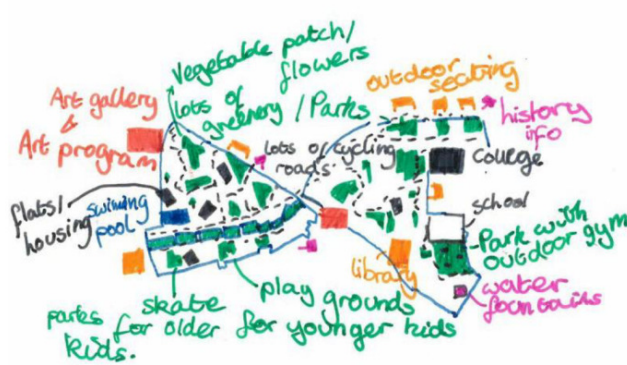 Vegetable patch/
flowers
outdoor
seating
Art gallery
&
Art program
lots of
greenery / Parks
history
info
lots of cycling
roads
college
flats/
housing
swimming
pool
school
Park with
outdoor gym
library
water
fountains
skate
parks for older
kids.
play grounds
for younger kids